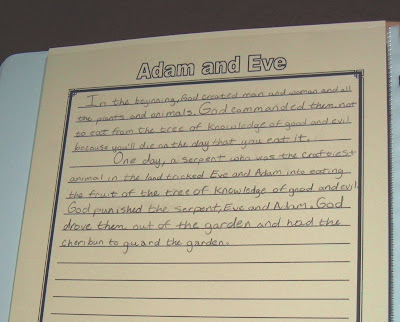 Adam and Eve
In the beginning, God created man and woman and all
the pants and animals. God commanded them not
to eat from the tree of knowledge of good and evil
because you'll die on the day that you eat it.
One day, a serpent who was the craftiest
animal in the land tricked Eve and Adam into eating
the fruit of the tree of knowledge of good and evil.
God punished the serpent, Eve and Adam. God
drove them out of the garden and had the
cheribun to guard the garden.